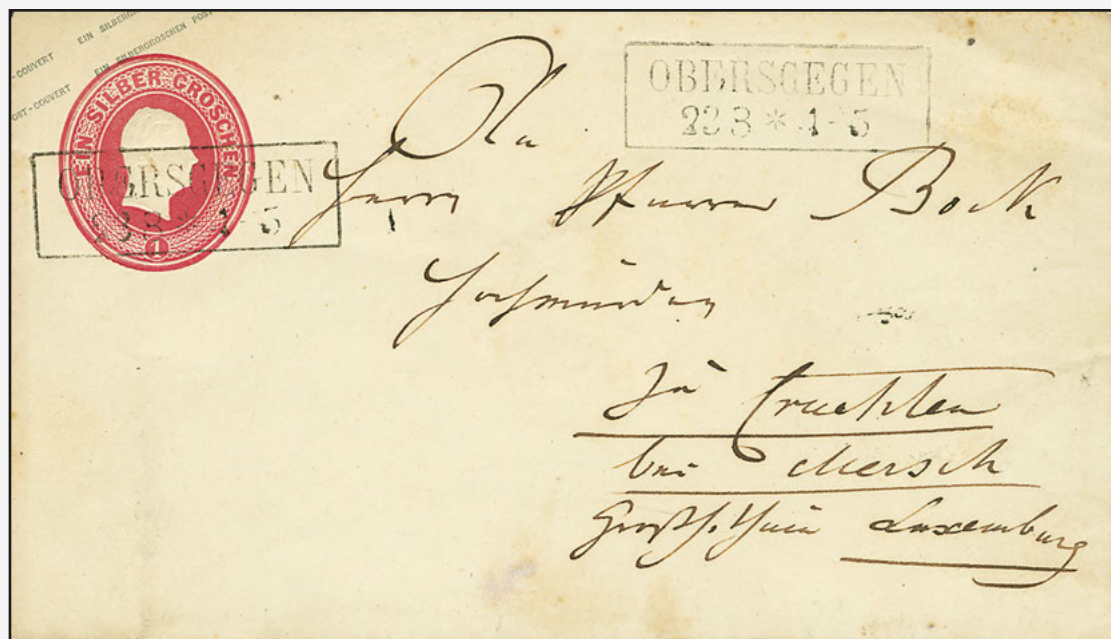 EIN SILBERG
-COUVERT EIN SILBERGROSCHEN POST
OST-COUVERT
EIN SILBER GROSCHEN
1
OBERSGEGEN
22 3 * 4-5
OBERSGEGEN
22 3 * 4-5
An
Herrn Pfarrer Bock
Hochwürden
zu Cruchten
bei Mersch
Großh. thum Luxemburg